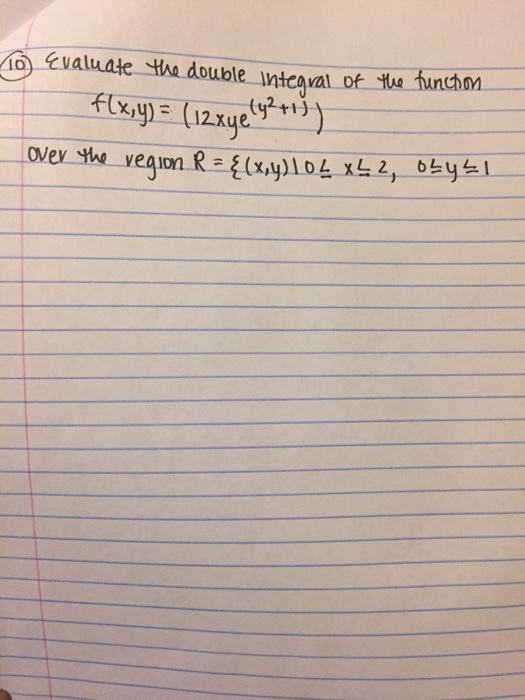 10 Evaluate the double integral of the function
f(x,y) = (12xye^(y²+1))
over the region R = {(x,y)|0 ≤ x ≤ 2, 0≤y≤1